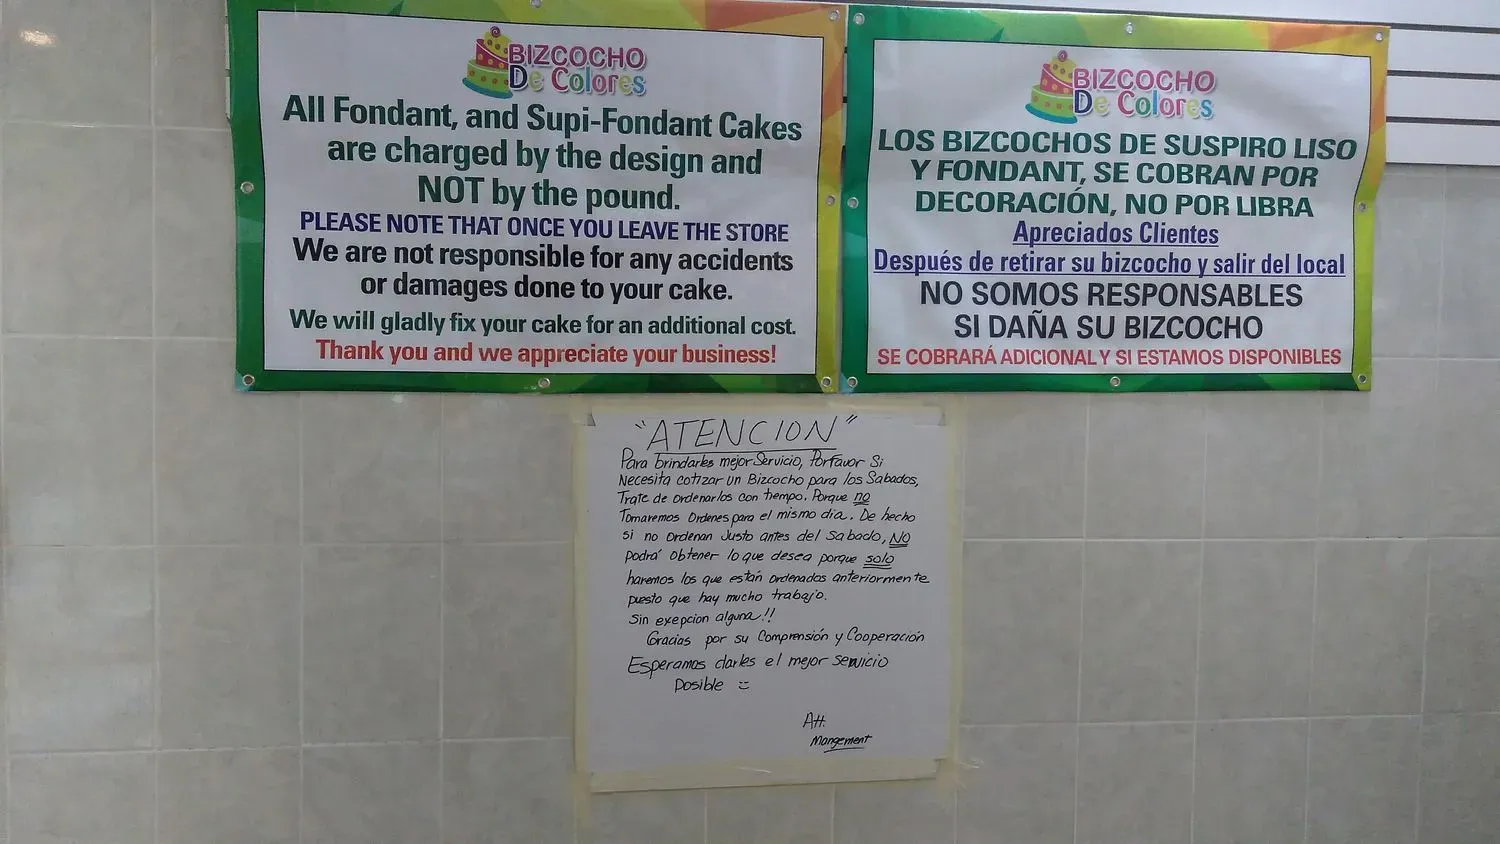 BIZCOCHO
De Colores
All Fondant, and Supi-Fondant Cakes
are charged by the design and
NOT by the pound.
PLEASE NOTE THAT ONCE YOU LEAVE THE STORE
We are not responsible for any accidents
or damages done to your cake.
We will gladly fix your cake for an additional cost.
Thank you and we appreciate your business!
BIZCOCHO
De Colores
LOS BIZCOCHOS DE SUSPIRO LISO
Y FONDANT, SE COBRAN POR
DECORACIÓN, NO POR LIBRA
Apreciados Clientes
Después de retirar su bizcocho y salir del local
NO SOMOS RESPONSABLES
SI DAÑA SU BIZCOCHO
SE COBRARÁ ADICIONAL Y SI ESTAMOS DISPONIBLES
"ATENCION"
Para brindarles mejor Servicio, Porfavor Si
Necesita cotizar un Bizcocho para los Sabados,
Trate de ordenarlos con tiempo. Porque no
Tomaremos Ordenes para el mismo dia. De hecho
si no ordenan Justo antes del Sabado, NO
podrá obtener lo que desea porque solo
haremos los que están ordenados anteriormente
puesto que hay mucho trabajo.
Sin exepcion alguna!!
Gracias por su Comprensión y Cooperación
Esperamos darles el mejor servicio
Posible =)
Att.
Mangement